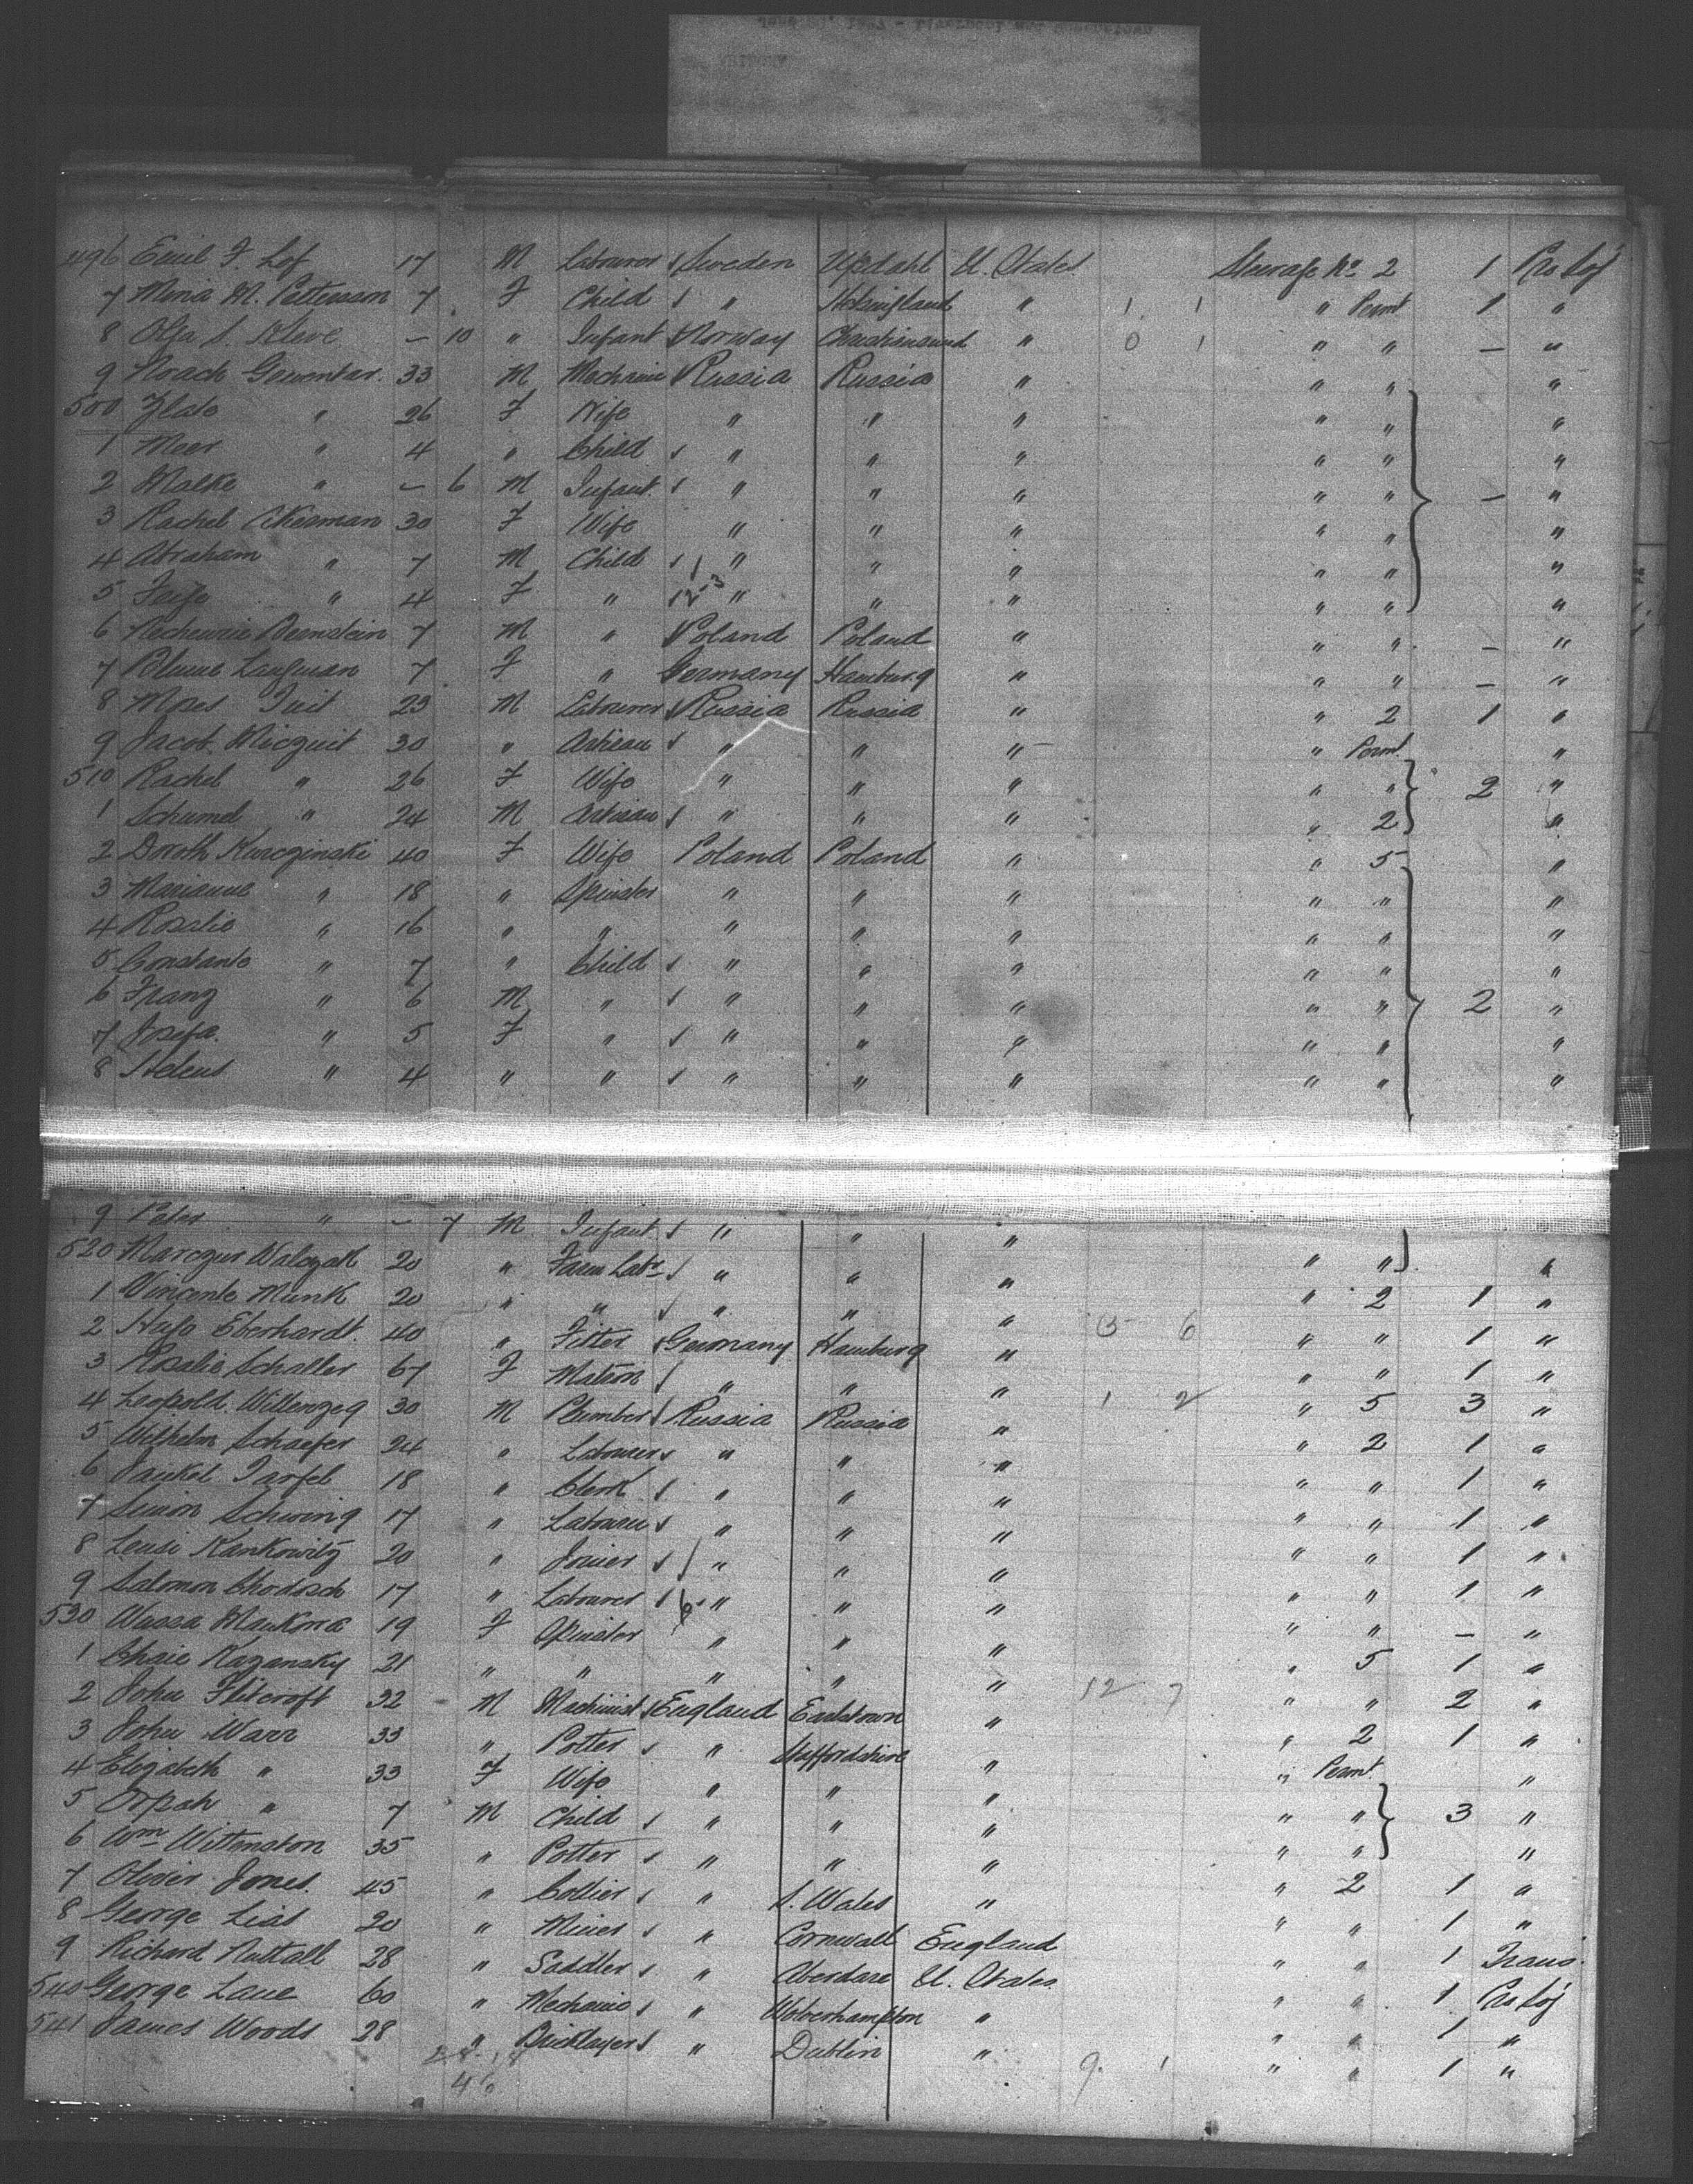 496 Emil F. Lof 17 M Labourer Sweden Updahl U. States Steerage No 2 1 Pro Soj
7 Maria M. Pettersson 7 F Child " " " 1 1 " Permt 1 "
8 Olga S. Kleve - 10 " Infant Norway Christiansund " 0 1 " " - "
9 Noach 33 M Mechanic Russia Russia " " " "
500 Zlate " 26 F Wife " " " " " "
1 Meer " 4 " Child " " " " " "
2 Malke " - 6 M Infant " " " " " - "
3 Rachel Ckerman 30 F Wife " " " " " "
4 Abraham " 7 M Child " " " " " "
5 Feige " 4 F " " " " " " "
6 Bernstein 7 M " Poland Poland " " " - "
7 Blume Langman 7 F " Germany Hamburg " " " - "
8 Moses Tuit 23 M Labourer Russia Russia " " 2 1 "
9 Jacob Miczuit 30 " Artisan " " " " Permt "
510 Rachel " 26 F Wife " " " " " 2 "
1 Schumel " 24 M Artisan " " " " 2 "
2 Doroth Kurczinski 40 F Wife Poland Poland " " 5 "
3 Marianne " 18 " Spinster " " " " " "
4 Rosalie " 16 " " " " " " " "
5 Constante " 7 " Child " " " " " "
6 Franz " 6 M " " " " " " 2 "
7 Josefa " 5 F " " " " " " "
8 Helene " 4 " " " " " " " "
9 Peter " - 7 M Infant " " " " " "
520 Marczus Walczak 20 " Farm Labr " " " " 2 1 "
1 Vincente Munk 20 " " " " " " " 1 "
2 Hugo Eberhardt 40 " Fitter Germany Hamburg " 13 6 " " 1 "
3 Rosalie Schaller 67 F Matron " " " " 5 3 "
4 Leopold Willenzeg 30 M Plumber Russia Russia " 1 2 " 2 1 "
5 Wilhelm Schaefer 24 " Labourer " " " " " 1 "
6 Jankel Tarfel 18 " Clerk " " " " " 1 "
7 Simon Schwing 17 " Labourer " " " " " 1 "
8 Leusi Kankowitz 20 " Joiner " " " " " 1 "
9 Salomon Chodosch 17 " Labourer " " " " " - "
530 Wassa Mankona 19 F Spinster " " " " 5 1 "
1 Chaie Kazansky 21 " " " " " " " 2 "
2 John Flitcroft 32 M Machinist England Earlstown " 12 7 " 2 1 "
3 John Warr 33 " Potter " Staffordshire " " Permt "
4 Elizabeth " 33 F Wife " " " " " 3 "
5 Orpah " 7 M Child " " " " " "
6 Wm Wittenston 35 " Potter " " " " 2 1 "
7 Oliver Jones 45 " Collier " S. Wales " " " 1 "
8 George Lias 20 " Miner " Cornwall England " " 1 Trans
9 Richard Nuttall 28 " Saddler " Aberdare U. States " " 1 Pro Soj
540 George Lane 60 " Mechanic " Wolverhampton " " " 1 "
541 James Woods 28 " Bricklayer " Dublin " 9 1 " " 1 "
46